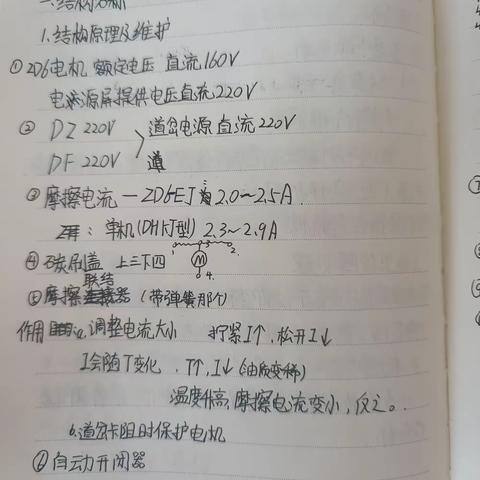 一.结构分析
1.结构原理及维护
① ZD6电机 额定电压 直流160V
电源屏提供电压直流220V
② DZ 220V 〉道岔电源 直流220V
DF 220V
③ 摩擦电流 — ZD6EJ 为 2.0~2.5A.
单机(DHKJ型) 2.3~2.9A
④ 碳刷盖 上三下四 1. 3 2. M 4.
⑤ 摩擦联结器 (带弹簧那个)
作用 a.调整电流大小 拧紧I↑, 松开I↓
I会随T变化. T↑, I↓ (油质变稀)
温度升高, 摩擦电流变小, 反之。
b.道岔卡阻时保护电机
⑥ 自动开闭器